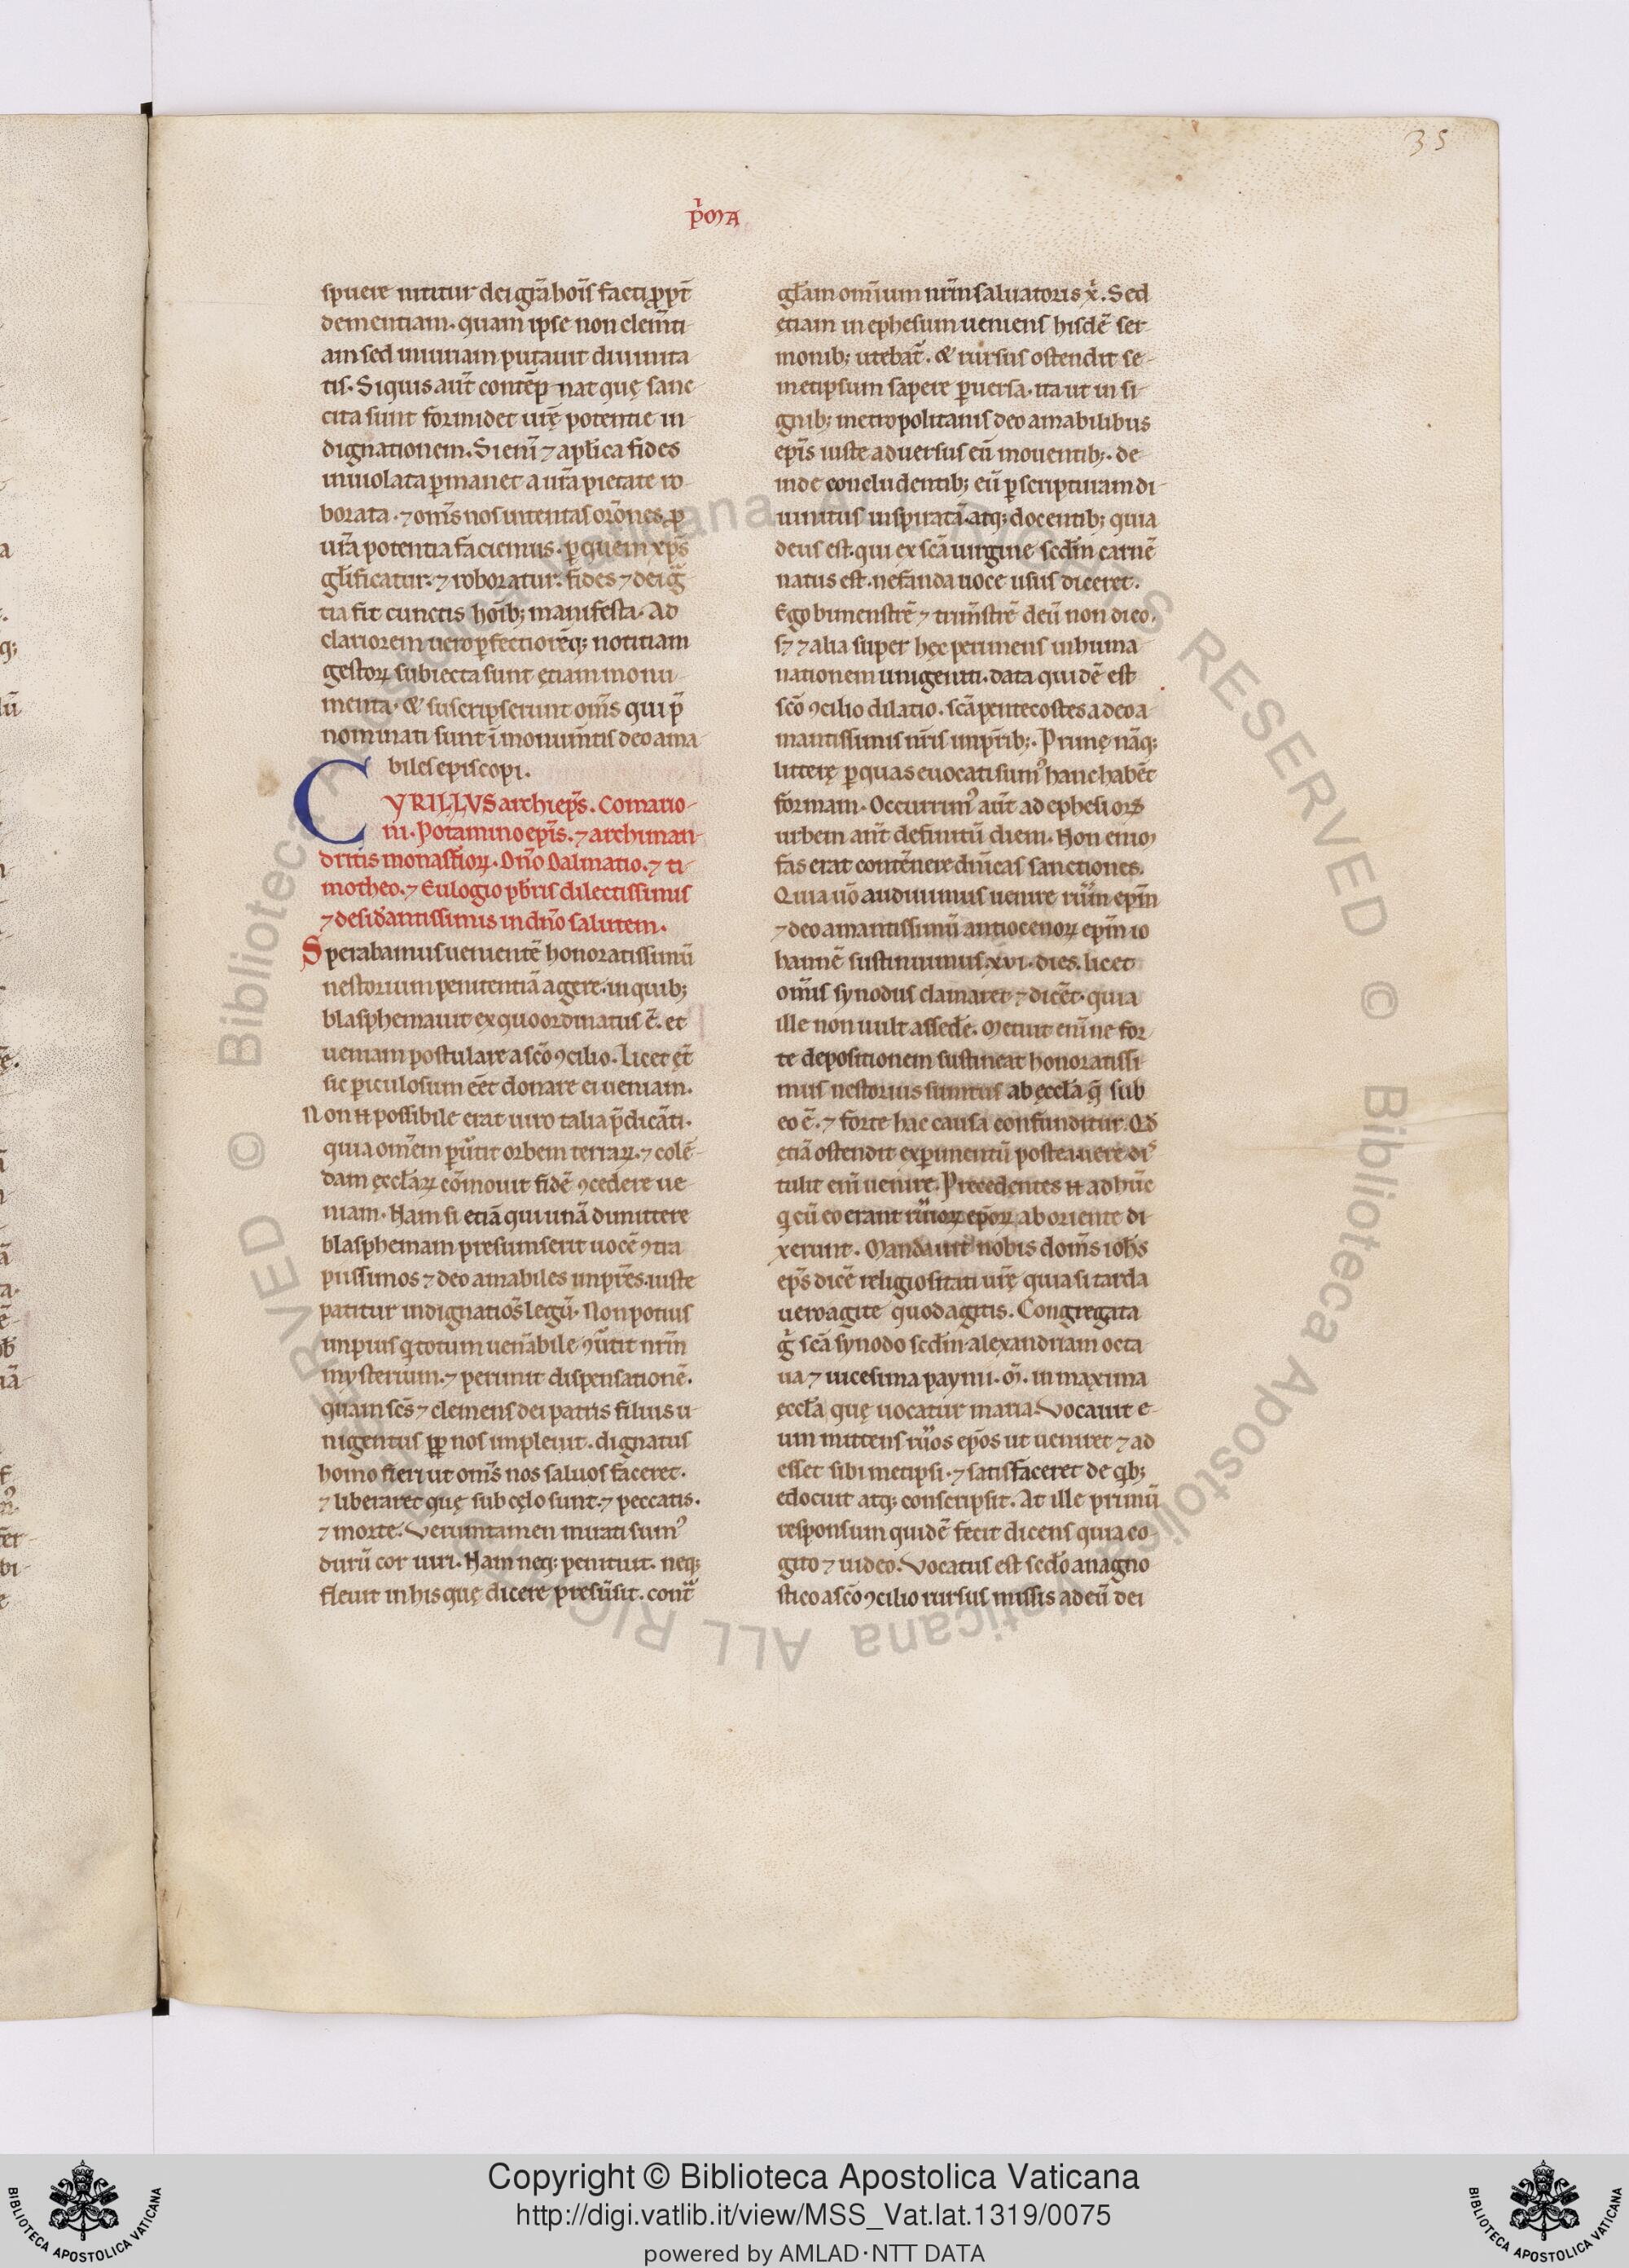 35
p̄ima
spuere nititur dei gr̄a hoīs facti ꝓp̄t
dementiam. quam ipse non clem̄ti-
am sed iniuriam putauit diuinita
tis. Siquis aut̄ contēp-nat quę sanc-
cita sunt formidet ur̄ę potentie in-
dignationem. Si eni̅ ⁊ aplica fides
inuiolata ꝑmanet a ur̄a pietate ro-
borata. ⁊ om̄s nos intentas orōnes ꝓ
ur̄a potentia faciemus. ꝑ quem xp̄s
gl̄ificatur. ⁊ roboratur. fides ⁊ dei gr̄a
tia fit cunctis hoīb; manifesta. Ad
clariorem uero ꝑfectiorēq; notitiam
gestoꝝ subiecta sunt ętiam monu-
menta. & suscripserunt om̄s qui p̄
nominati sunt ī monum̄tis deo ama-
biles episcopi.
CYRILLVS archiep̄s. Comario-
ni. Potamino ep̄is. ⁊ archiman-
dritis monast̄ioꝝ. Dn̄o Dalmatio. ⁊ ti-
motheo. ⁊ Eulogio pb̄ris dilectissimis
⁊ desid̄antissimis in dn̄o salutem.
Sperabamus uenientē honoratissimū
nestorium penitentiā agere. in quib;
blasphemauit ex quo ordinatus ē. et
ueniam postulare a sc̄o ꝯcilio. Licet et̄
sic ꝑiculosum eēt donare ei ueniam.
Non n̄ possibile erat uiro talia p̄dicāti.
quia om̄em ꝑūtit orbem terraꝝ. ⁊ colē-
dam ęcclāꝝ cōmouit fidē ꝯcedere ue
niam. Nam si etiā qui unā dimittere
blasphemam presumserit uocē ꝯtra
piissimos ⁊ deo amabiles imp̄res. iuste
patitur indignatiōs legū. Non potius
impius q̇ totum uen̄abile ꝯūtit nr̄m
mysterium. ⁊ perimit dispensationē.
quam sc̄s ⁊ clemens dei patris filius u-
nigenitus ꝓp nos impleuit. dignatus
homo fieri ut om̄s nos saluos faceret.
⁊ liberaret quę sub cęlo sunt. ⁊ peccatis.
⁊ morte. Veruntamen mirati sumꝰ
durū cor uiri. Nam neq; penituit. neq;
fleuit in his quę dicere presūsit. cont̄
gl̄am om̄ium nr̄m saluatoris x̄. Sed
etiam in ephesum ueniens hisdē ser-
monib; utebat̄. & rursus ostendit se-
metipsum sapere ꝑuersa. ita ut in si-
gnib; metropolitanis deo amabilibus
ep̄is iuste aduersus eū mouentib;. de-
inde concludentib; eū ꝑ scripturam di-
uinitus inspiratā. atq; docentib; quia
deus est. qui ex sc̄a uirgine sc̄dm carnē
natus est. nefanda uoce usus diceret.
Ego bimenstrē ⁊ trim̄strē deū non dico.
s; ⁊ alia super hęc perimens inhuma-
nationem unigeniti. data quidē est
sc̄o ꝯcilio dilatio. sc̄a pentecostes a deo a-
mantissimis nr̄is imp̄rib;. Prime nāq;
litterę ꝑ quas euocati sumꝰ hanc habēt
formam. Occurrimꝰ aut̄ ad ephesioꝝ
urbem ant̄ definitū diem. Non enim
fas erat contēnere dn̄icas sanctiones.
Quia uō audiuimus uenire r̄um ep̄m
⁊ deo amantissimū antiocenoꝝ ep̄m io
hannē sustinuimus. xvi. dies. licet
om̄is synodus clamaret ⁊ dicēt. quia
ille non uult assed̄e. Metuit eni̅ ne for-
te depositionem sustineat honoratissi-
mus nestorius sumtus ab ęccl̄a q̄ sub
eo ē. ⁊ forte hac causa confunditur. Qđ
etiā ostendit exꝑimentū postea. uere di-
tulit eni̅ uenire. Precedentes n̄ adhuc
q̇ cū eo erant r̄uoꝝ ep̄oꝝ ab oriente di
xerunt. Mandauit nobis domn̄s ioh̄s
ep̄s dicē religiositati ur̄ę quia si tarda
uero agite quod agitis. Congregata
ġ sc̄a synodo sc̄dm alexandriam octa
ua ⁊ uicesima payni. m̄. in maxima
ęccl̄a quę uocatur maria. Vocauit e-
um mittens r̄uos ep̄os ut ueniret ⁊ ad
esset sibimetipsi. ⁊ satisfaceret de q̇b;
edocuit atq; conscripsit. At ille primū
responsum quidē fecit dicens quia co-
gito ⁊ uideo. Vocatus est sc̄do anagno
stico a sc̄o ꝯcilio rursus missis ad eū dei
© Biblioteca Apostolica Vaticana ALL RIGHTS RESERVED © Biblioteca Apostolica Vaticana ALL RIGHTS RESERVED
Copyright © Biblioteca Apostolica Vaticana
http://digi.vatlib.it/view/MSS_Vat.lat.1319/0075
powered by AMLAD·NTT DATA
BIBLIOTECA APOSTOLICA VATICANA
BIBLIOTECA APOSTOLICA VATICANA